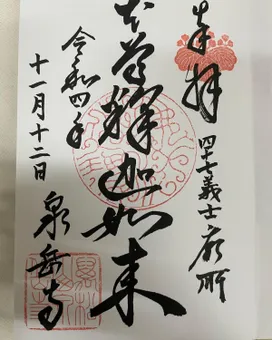 奉拝
四十七義士廟所
本尊釋迦如来
令和四年
十一月十二日
泉岳寺